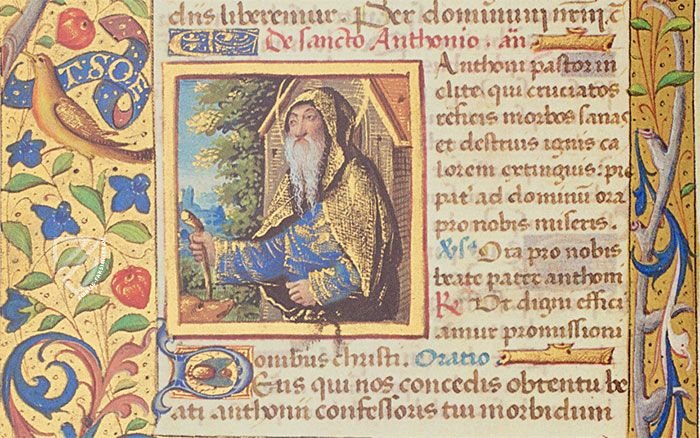 diis liberemur. Per dominum nrm.
De sancto Anthonio. an
TSOE
Anthoni pastor in
clite qui cruciatos
reficis morbos sanas
et destruis ignis ca
lorem extinguis: pie
pater ad dominum ora
pro nobis miseris.
Ora pro nobis
beate pater anthoni
R Ut digni effici
amur promissioni
bus christi. Oratio
Deus qui nos concedis obtentu be
ati anthonii confessoris tui morbidum